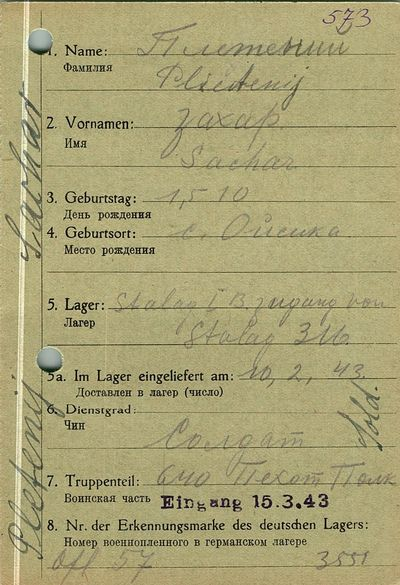 573
1. Name: Плетений
Фамилия
Pletenij
2. Vornamen: Захар
Имя
Sachar
3. Geburtstag: 1,5 10
День рождения
4. Geburtsort: с. Ойсика
Место рождения
5. Lager: Stalag I B. Zugang von
Лагер
Stalag 316.
5a. Im Lager eingeliefert am: 10, 2, 43.
Доставлен в лагер (число)
6. Dienstgrad: Sold.
Чин
Солдат
7. Truppenteil: 640 Пехот Полк
Воинская часть Eingang 15.3.43
8. Nr. der Erkennungsmarke des deutschen Lagers:
Номер военнопленного в германском лагере
Ofl 57 3551
Pletenij Sachar